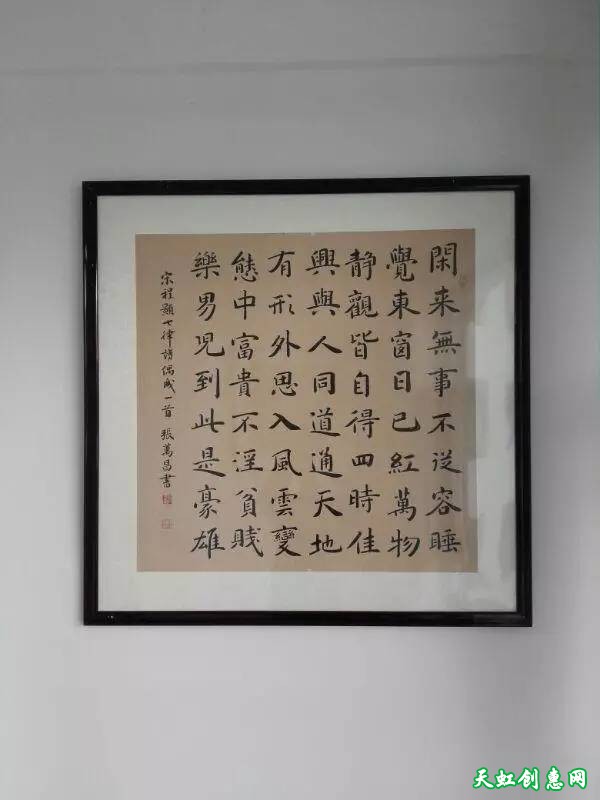 閑来無事不從容睡
覺東窗日已紅萬物
静觀皆自得四時佳
興與人同道通天地
有形外思入風雲變
態中富貴不淫貧賤
樂男児到此是豪雄
宋程顥七律詩偶成一首 張萬昌書
天虹创惠网